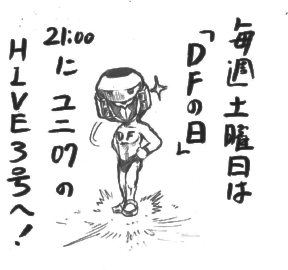 毎週土曜日は
「DFの日」
21:00
に ユニ07の
HIVE3号へ!
DF